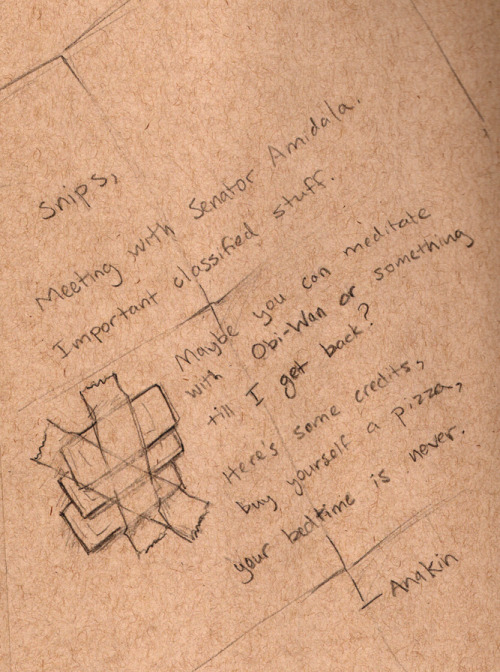 Snips,
Meeting with Senator Amidala.
Important classified stuff.
Maybe you can meditate
with Obi-Wan or something
till I get back?
Here's some credits,
buy yourself a pizza,
your bedtime is never.
Anakin